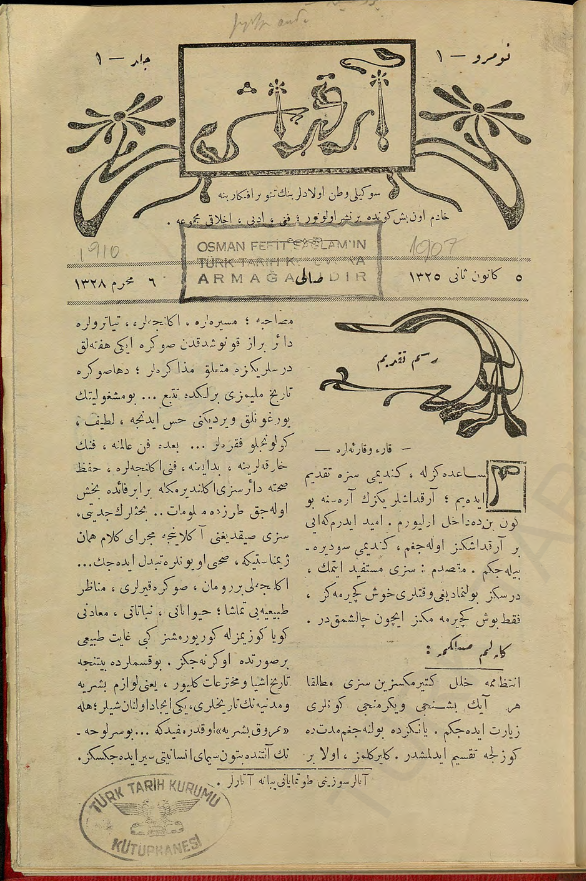 نومرو — ١
جلد — ١
آرقداش
سوكیلی وطن اولادلرینك تنویر افكارینه
خادم اون بش كونده بر نشر اولونور ؛ فنی ، ادبی ، اخلاقی مجموعه .
1910
1907
OSMAN FERİT SAĞLAM'IN
TÜRK TARİH KURUMUNA
ARMAĞANIDIR
٥ كانون ثانی ١٣٢٥
صالی
٦ محرم ١٣٢٨
رسم تقدیم
— قارء وقارئه‌لره —
مساعده كزله ، كندیمی سزه تقدیم
ایده‌یم ؛ آرقداشلریكزك آره‌سنه بو
كون بن ده داخل اولیورم . امید ایدرم كه ایی
بر آرقداشكز اوله‌جغم ، كندیمی سودیره -
بیله‌جكم . مقصدم : سزی مستفید ایتمك ،
درسكز بولنمادیغی وقتلری خوش كچیرمه‌كز ،
فقط بوش كچیرمه مكز ایچون چالشمق در .
كله‌لم مسلكمه :
انتظامه خلل كتیرمكسزین سزی مطلقا
هر آیك بشنجی ویكرمنجی كونلری
زیارت ایده‌جكم . یانكزده بولنه‌جغم مدت ده
كوزلجه تقسیم ایدلمشدر . كلیركلمز ، اولا بر
مصاحبه ؛ مسیره‌لره . اكلنجه‌لره ، تیاترولره
دائر براز قونوشدقدن صوكره ایكی هفته‌لق
درسلریكزه متعلق مذاكره‌لر ؛ دها صوكره
تاریخ ملیمزی برلكده تتبع ... بو مشغولیتك
یورغونلق ویردیكنی حس ایدنجه ، لطیف ،
كولونجلو فقره‌لر ... بعده فن عالمنه ، فنك
خارقه‌لرینه ، بدایعنه ، فنی اكلنجه‌لره ، حفظ
صحته دائر سزی اكلندیرمكله برابر فائده بخش
اوله‌جق طرزده معلومات .. بحثلرك جدیتی،
سزی صیقدیغنی آكلاینجه مجرای كلام همان
ژیمناستیكه، صحی اویونلره تبدل ایده‌جك...
اكلنجه‌لی بر رومان ، صوكره قیرلری ، مناظر
طبیعیه‌یی تماشا ؛ حیواناتی ، نباتاتی ، معادنی
كویا كوزیمزله كورییورمشز كبی غایت طبیعی
بر صورتده اوكرنه‌جكز . بو قسملرده بیتنجه
تاریخ اشیا ومخترعات كلیور ، یعنی لوازم بشریه
ومدنیه‌نك تاریخلری، یكی ایجاد اولنان شیلر؛ هله
«عروق بشریه» اوقدر مفیدكه ... بو سر لوحه -
نك آلتنده بتون سیمای انسانیتی سیر ایده‌جكسكز.
آتالر سوزینی طوتمایانی یبانه آتارلر .
TÜRK TARİH KURUMU
KÜTÜPHANESİ